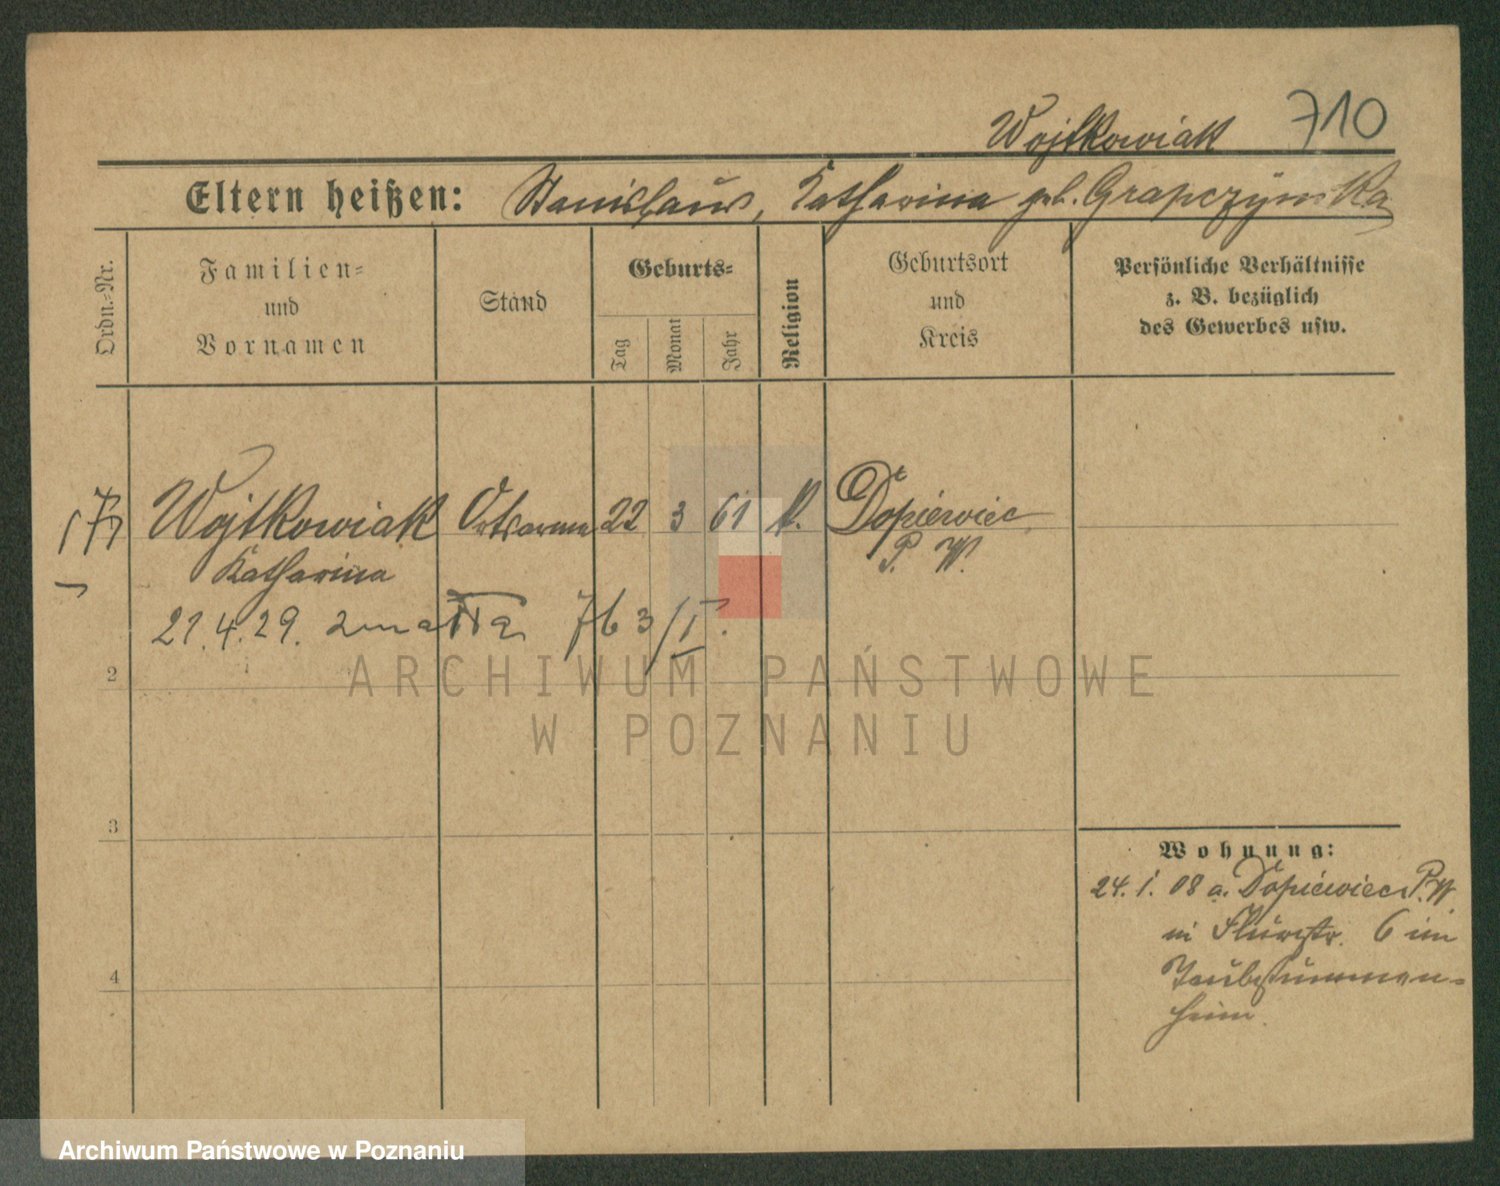 Wojtkowiak 710
Eltern heißen: Stanislaus, Katharina geb. Grapczynska
Ordn.-Nr.
Familien-
und
Vornamen
Stand
Geburts-
Tag
Monat
Jahr
Religion
Geburtsort
und
Kreis
Persönliche Verhältnisse
z. B. bezüglich
des Gewerbes usw.
Wojtkowiak Ortsarme 22 3 61 k. Dopiewiec
Katharina P. W.
21.4.29. zmarła 763/I.
2
3
4
Wohnung:
24. 1. 08 a. Dopiewiec P.W.
in Flurstr. 6 im
Taubstummen-
heim.
ARCHIWUM PAŃSTWOWE
W POZNANIU
Archiwum Państwowe w Poznaniu